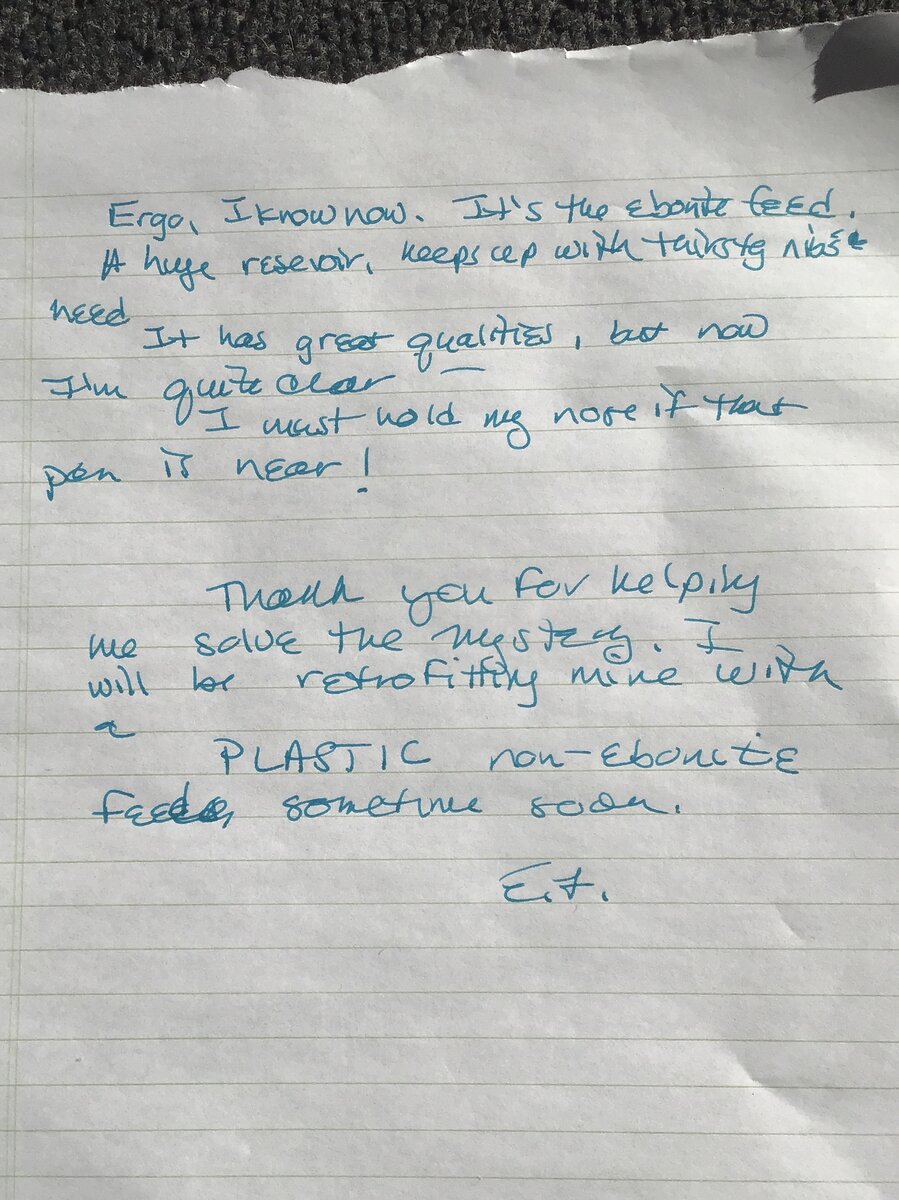 Ergo, I know now. It's the ebonite feed.
A huge resevoir, keeps up with thirsty nibs
need
It has great qualities, but now
I'm quite clear
I must hold my nose if that
pen is near!
Thank you for helping
me solve the mystery. I
will be retrofitting mine with
a
PLASTIC non-ebonite
feed, sometime soon.